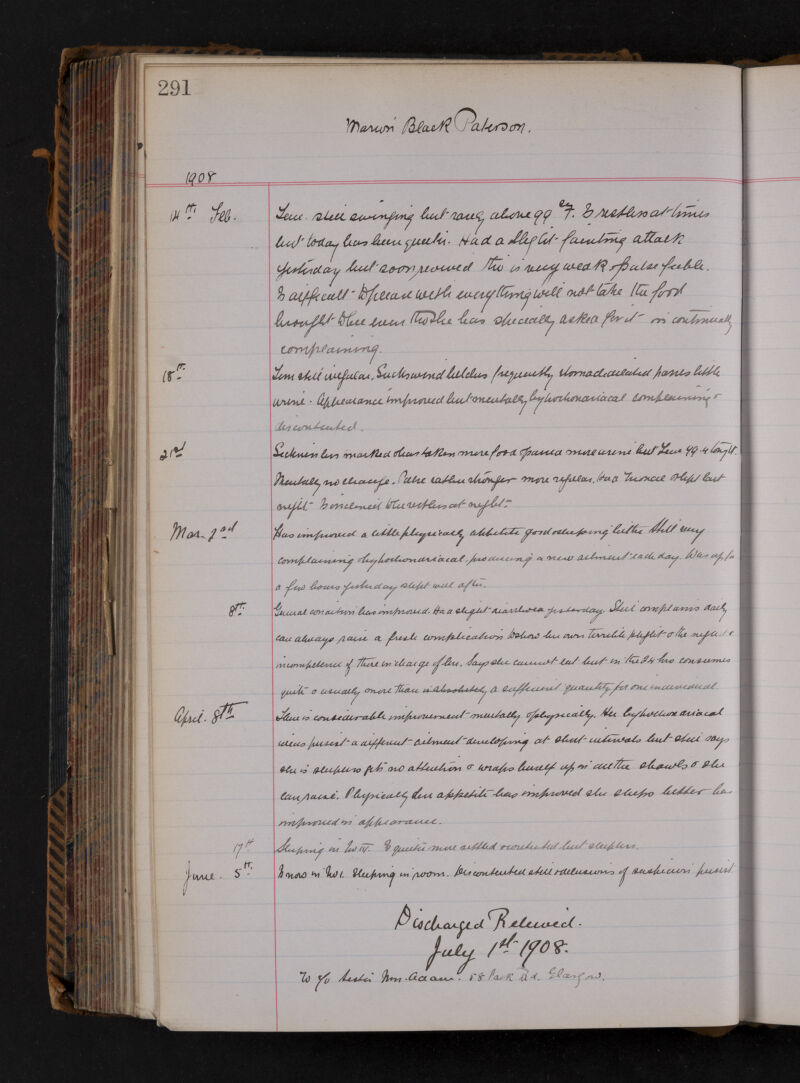 291
Marion Black Paterson.
1908
14th Feb. Tem. still swinging but rarely above 99 F. Is restless at times
but today has been quieter. Had a slight fainting attack
yesterday but soon revived tho' is very weak & pulse feeble.
Is difficult to please with everything will not take the food
brought to her even tho she has specially asked for it - is continually
complaining.
18th Tem still irregular. Sickness and belches frequently stomach dilated passes little
urine. Appearance improved but mentally hypochondriacal complaining &
discontented.
21st Sickness less marked & has taken more food & passed more urine but Tem 99.4 tonight.
Mentally no change. Pulse rather stronger more regular. Had Trional & slept last
night. Is inclined to be restless at night.
Mar. 2nd Has improved a little physically appetite good & sleeping better. Still very
complaining & hypochondriacal, producing a new ailment each day. Was up for
a few hours yesterday slept well after.
8th General condition has improved. Had a slight diarrhoea yesterday. Still complains daily
can always raise a fresh complication to show her own terrible plight & the neglect &
incompetence of those in charge of her. Says she cannot eat but in the 24 hrs consumes
quite & usually more than is absolutely a sufficient quantity for one individual.
April. 8th There is considerable improvement mentally & physically. Her hypochondriacal
ideas persist a different ailment developing at short intervals but still says
she is sleepless gets no attention & wraps herself up in all the shawls & she
can raise. Physically her appetite has improved she sleeps better has
improved in appearance.
17th Sleeping in No IV. Is quieter more settled & contented but sleepless.
June. 5th Is now in No 1. Sleeping in room. Discontented still & delusions of suspicion persist.
Discharged Relieved.
July 1st 1908.
To c/o Sister Mrs. Adam. 58 Park Rd. Glasgow.